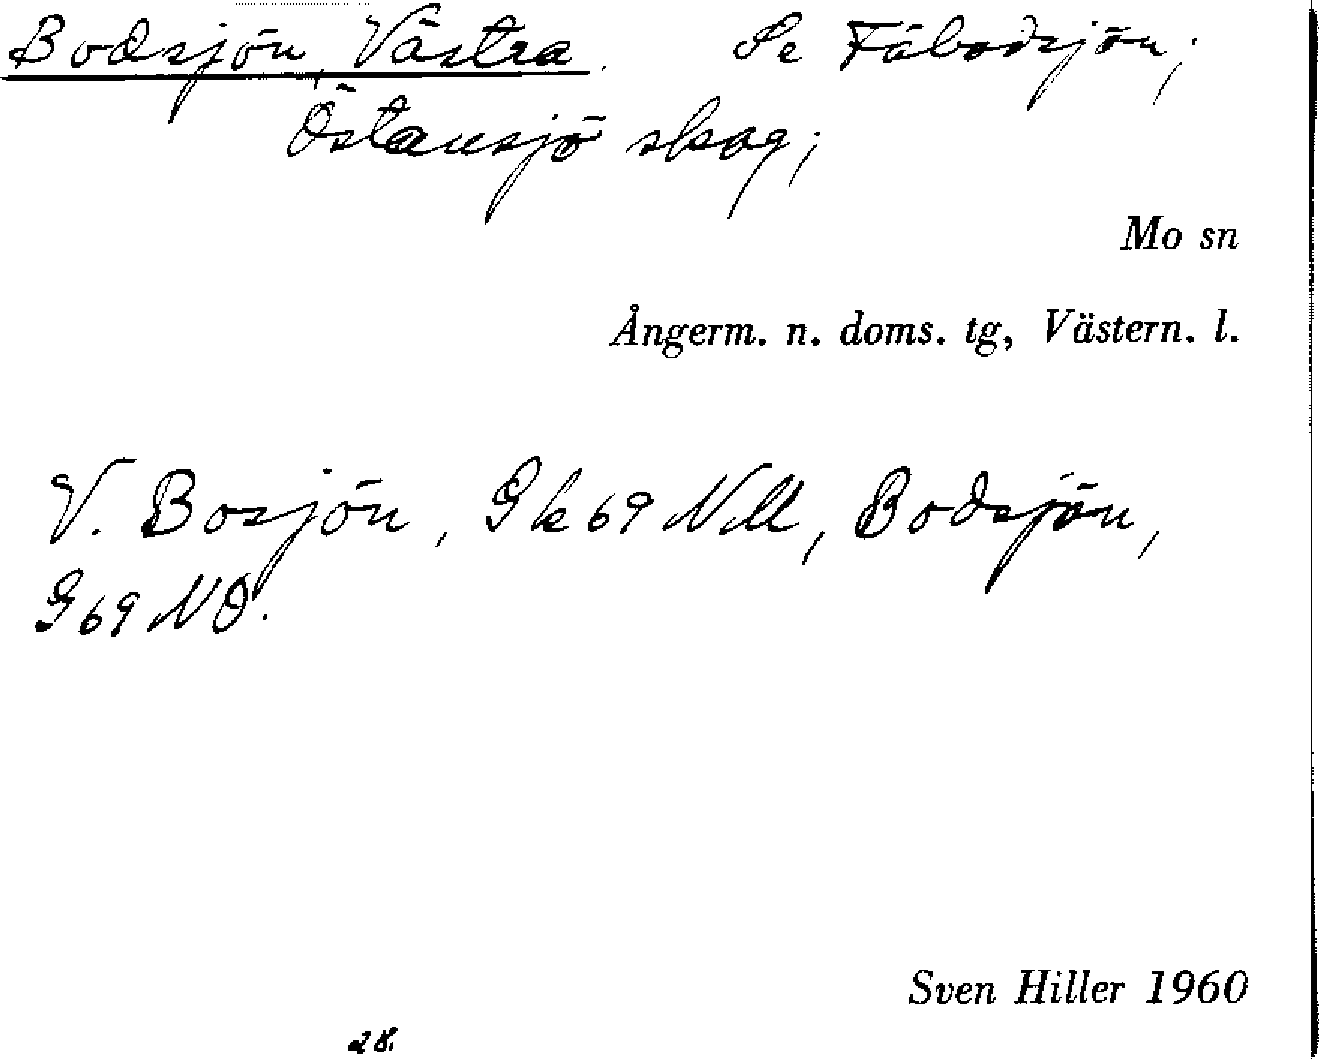 Bodsjön, Västra. Se Fäbodsjön;
Östansjö skog;
Mo sn
Ångerm. n. doms. tg, Västern. l.
V. Bosjön, Gk 69 NV, Bodsjön,
G 69 NO.
Sven Hiller 1960
28.